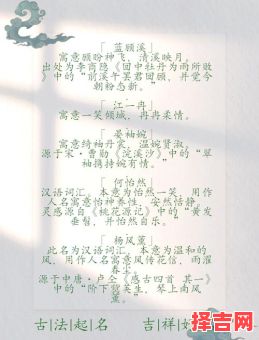 「蓝顾溪」
寓意顾盼神飞，清溪映月，
出处为李商隐《回中牡丹为雨所败》
中的“前溪午罢君回顾，并觉今
朝粉态新。”
「江一冉」
寓意一笑倾城，冉冉柔情。
「晏袖婉」
寓意绮袖丹裳，温婉贤淑，
源于宋·曹勋《浣溪沙》中的“翠
袖携持婉有情。”
「何怡然」
汉语词汇。本意为怡然一笑，用作
人名寓意怡神养性，安然恬静。
灵感源自《桃花源记》中的“黄发
垂髫，并怡然自乐。
「杨风薰」
此名为汉语词汇。本意为温和的
风，用作人名寓意风传花信，雨濯
春尘。
源于中唐·卢仝《感古四首 其一》
中的“阶下蓂荚生，琴上南风
薰。”
古|法|起|名
吉|祥|如
择吉网